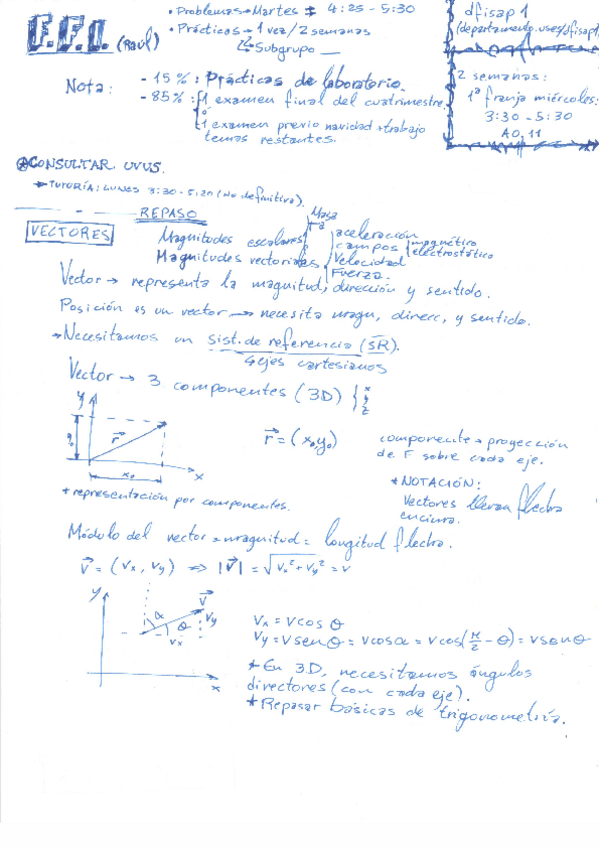 • Problemas → Martes : 4:25 - 5:30
F.F.I. (Raúl)
• Prácticas → 1 vez / 2 semanas
↳ Subgrupo __
dfisap 1
(departamento.us.es/dfisap1
Nota:
- 15% : Prácticas de laboratorio.
- 85% : 1 examen final del cuatrimestre.
ó
1 examen previo navidad + trabajo
temas restantes.
2 semanas:
1ª franja miércoles:
3:30 - 5:30
A0.11
CONSULTAR UVUS.
→ TUTORÍA: LUNES 3:30 - 5:20 (No definitiva).
REPASO
VECTORES
Magnitudes escalares
Masa
Magnitudes vectoriales
aceleración
campos
magnético
electrostático
Velocidad
Fuerza.
Vector → representa la magnitud, dirección y sentido.
Posición es un vector → necesita magn, direcc, y sentido.
→ Necesitamos un sist. de referencia (SR).
↳ ejes cartesianos
Vector → 3 componentes (3D) { x y z
y
y₀
r⃗
x₀
x
r⃗ = (x₀, y₀)
componente → proyección
de r⃗ sobre cada eje.
* representación por componentes.
* NOTACIÓN:
Vectores llevan flecha
encima.
Módulo del vector → magnitud = longitud flecha.
v⃗ = (vx, vy) ⇒ |v⃗| = √(vx² + vy²) = v
y
α
θ
v⃗
vy
vx
x
vx = v cos θ
vy = v sen θ = v cos α = v cos(π/2 - θ) = v sen θ
* En 3D, necesitamos ángulos
directores (con cada eje).
* Repasar básicas de trigonometría.